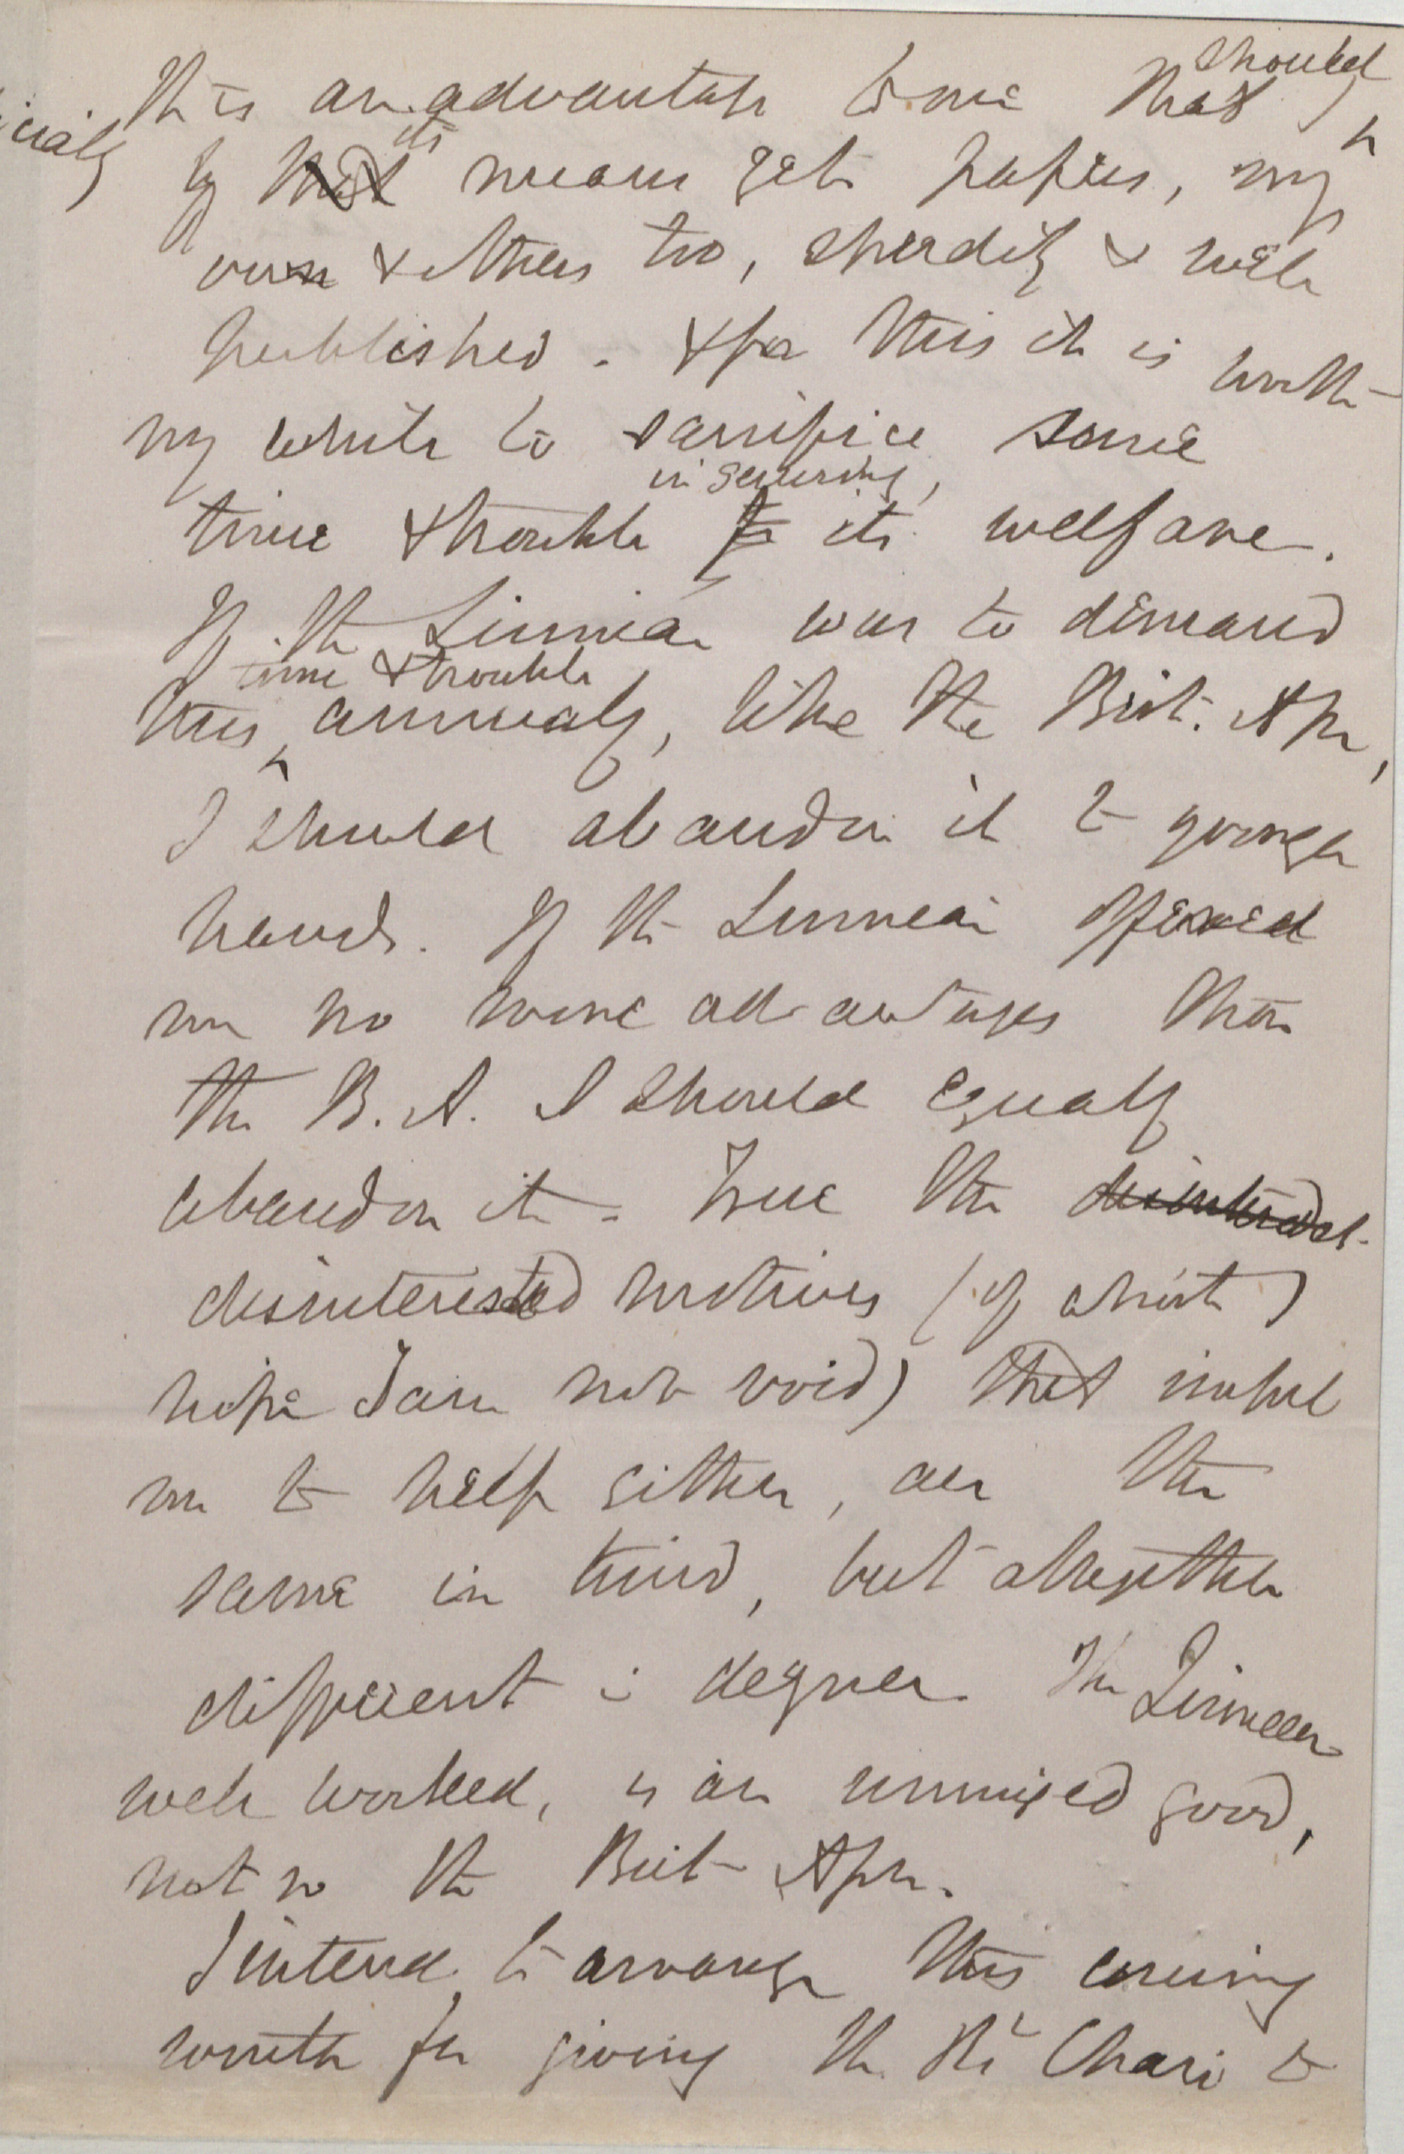 It is an advantage to me that I should
by ~~that~~ its means get papers, my
own & others too, speedily & well
published. & for this it is worth
my while to sacrifice some
time & trouble ~~to~~ in securing, its welfare.
If the Linnean was to demand
this time & trouble annually, like the Brit. Assn,
I should abandon it to younger
hands. If the Linnean offered
me no more advantages than
the B.A. I should equally
abandon it. True the ~~disinterested~~
disinterested motives (of which I
hope I am not void) that impel
me to help either, are the
same in kind, but altogether
different in degree. The Linnean
well worked, is an unmixed good,
not so the Brit Assn.
I intend to arrange this coming
month for giving the Chair to